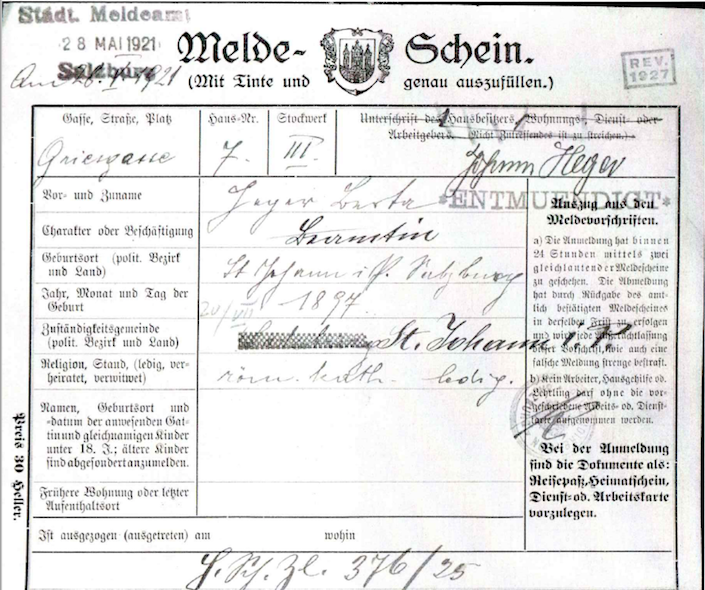 Städt. Meldeamt
28 MAI 1921
Salzburg
Am 28. V. 1921
Melde-Schein.
(Mit Tinte und genau auszufüllen.)
REV.
1927
Gasse, Straße, Platz
Haus-Nr.
Stockwerk
Unterschrift des Hausbesitzers, Wohnungs-, Dienst- oder
Arbeitgebers. (Nicht Zutreffendes ist zu streichen.)
Griesgasse
7.
III.
Johann Heger
Vor- und Zuname
Heger Berta
*ENTMUENDIGT*
Charakter oder Beschäftigung
Beamtin
Geburtsort (polit. Bezirk
und Land)
St Johann i. P. Salzburg
Jahr, Monat und Tag der
Geburt
20/VII 1897
Zuständigkeitsgemeinde
(polit. Bezirk und Land)
St. Johann i. P.
Religion, Stand, (ledig, ver-
heiratet, verwitwet)
röm. kath. ledig.
Namen, Geburtsort und
-datum der anwesenden Gat-
tin und gleichnamigen Kinder
unter 18. J.; ältere Kinder
sind abgesondert anzumelden.
Frühere Wohnung oder letzter
Aufenthaltsort
Auszug aus den
Meldevorschriften.
a) Die Anmeldung hat binnen
24 Stunden mittels zwei
gleichlautender Meldescheine
zu geschehen. Die Abmeldung
hat durch Rückgabe des amt-
lich bestätigten Meldescheines
in derselben Frist zu erfolgen
und wird jede Außerachtlassung
dieser Vorschrift, wie auch eine
falsche Meldung strenge bestraft.
b) Kein Arbeiter, Hausgehilfe od.
Lehrling darf ohne die vor-
geschriebene Arbeits- od. Dienst-
karte aufgenommen werden.
Bei der Anmeldung
sind die Dokumente als:
Reisepaß, Heimatschein,
Dienst- od. Arbeitskarte
vorzulegen.
Preis 30 Heller.
Ist ausgezogen (ausgetreten) am
wohin
Zl. 376/25